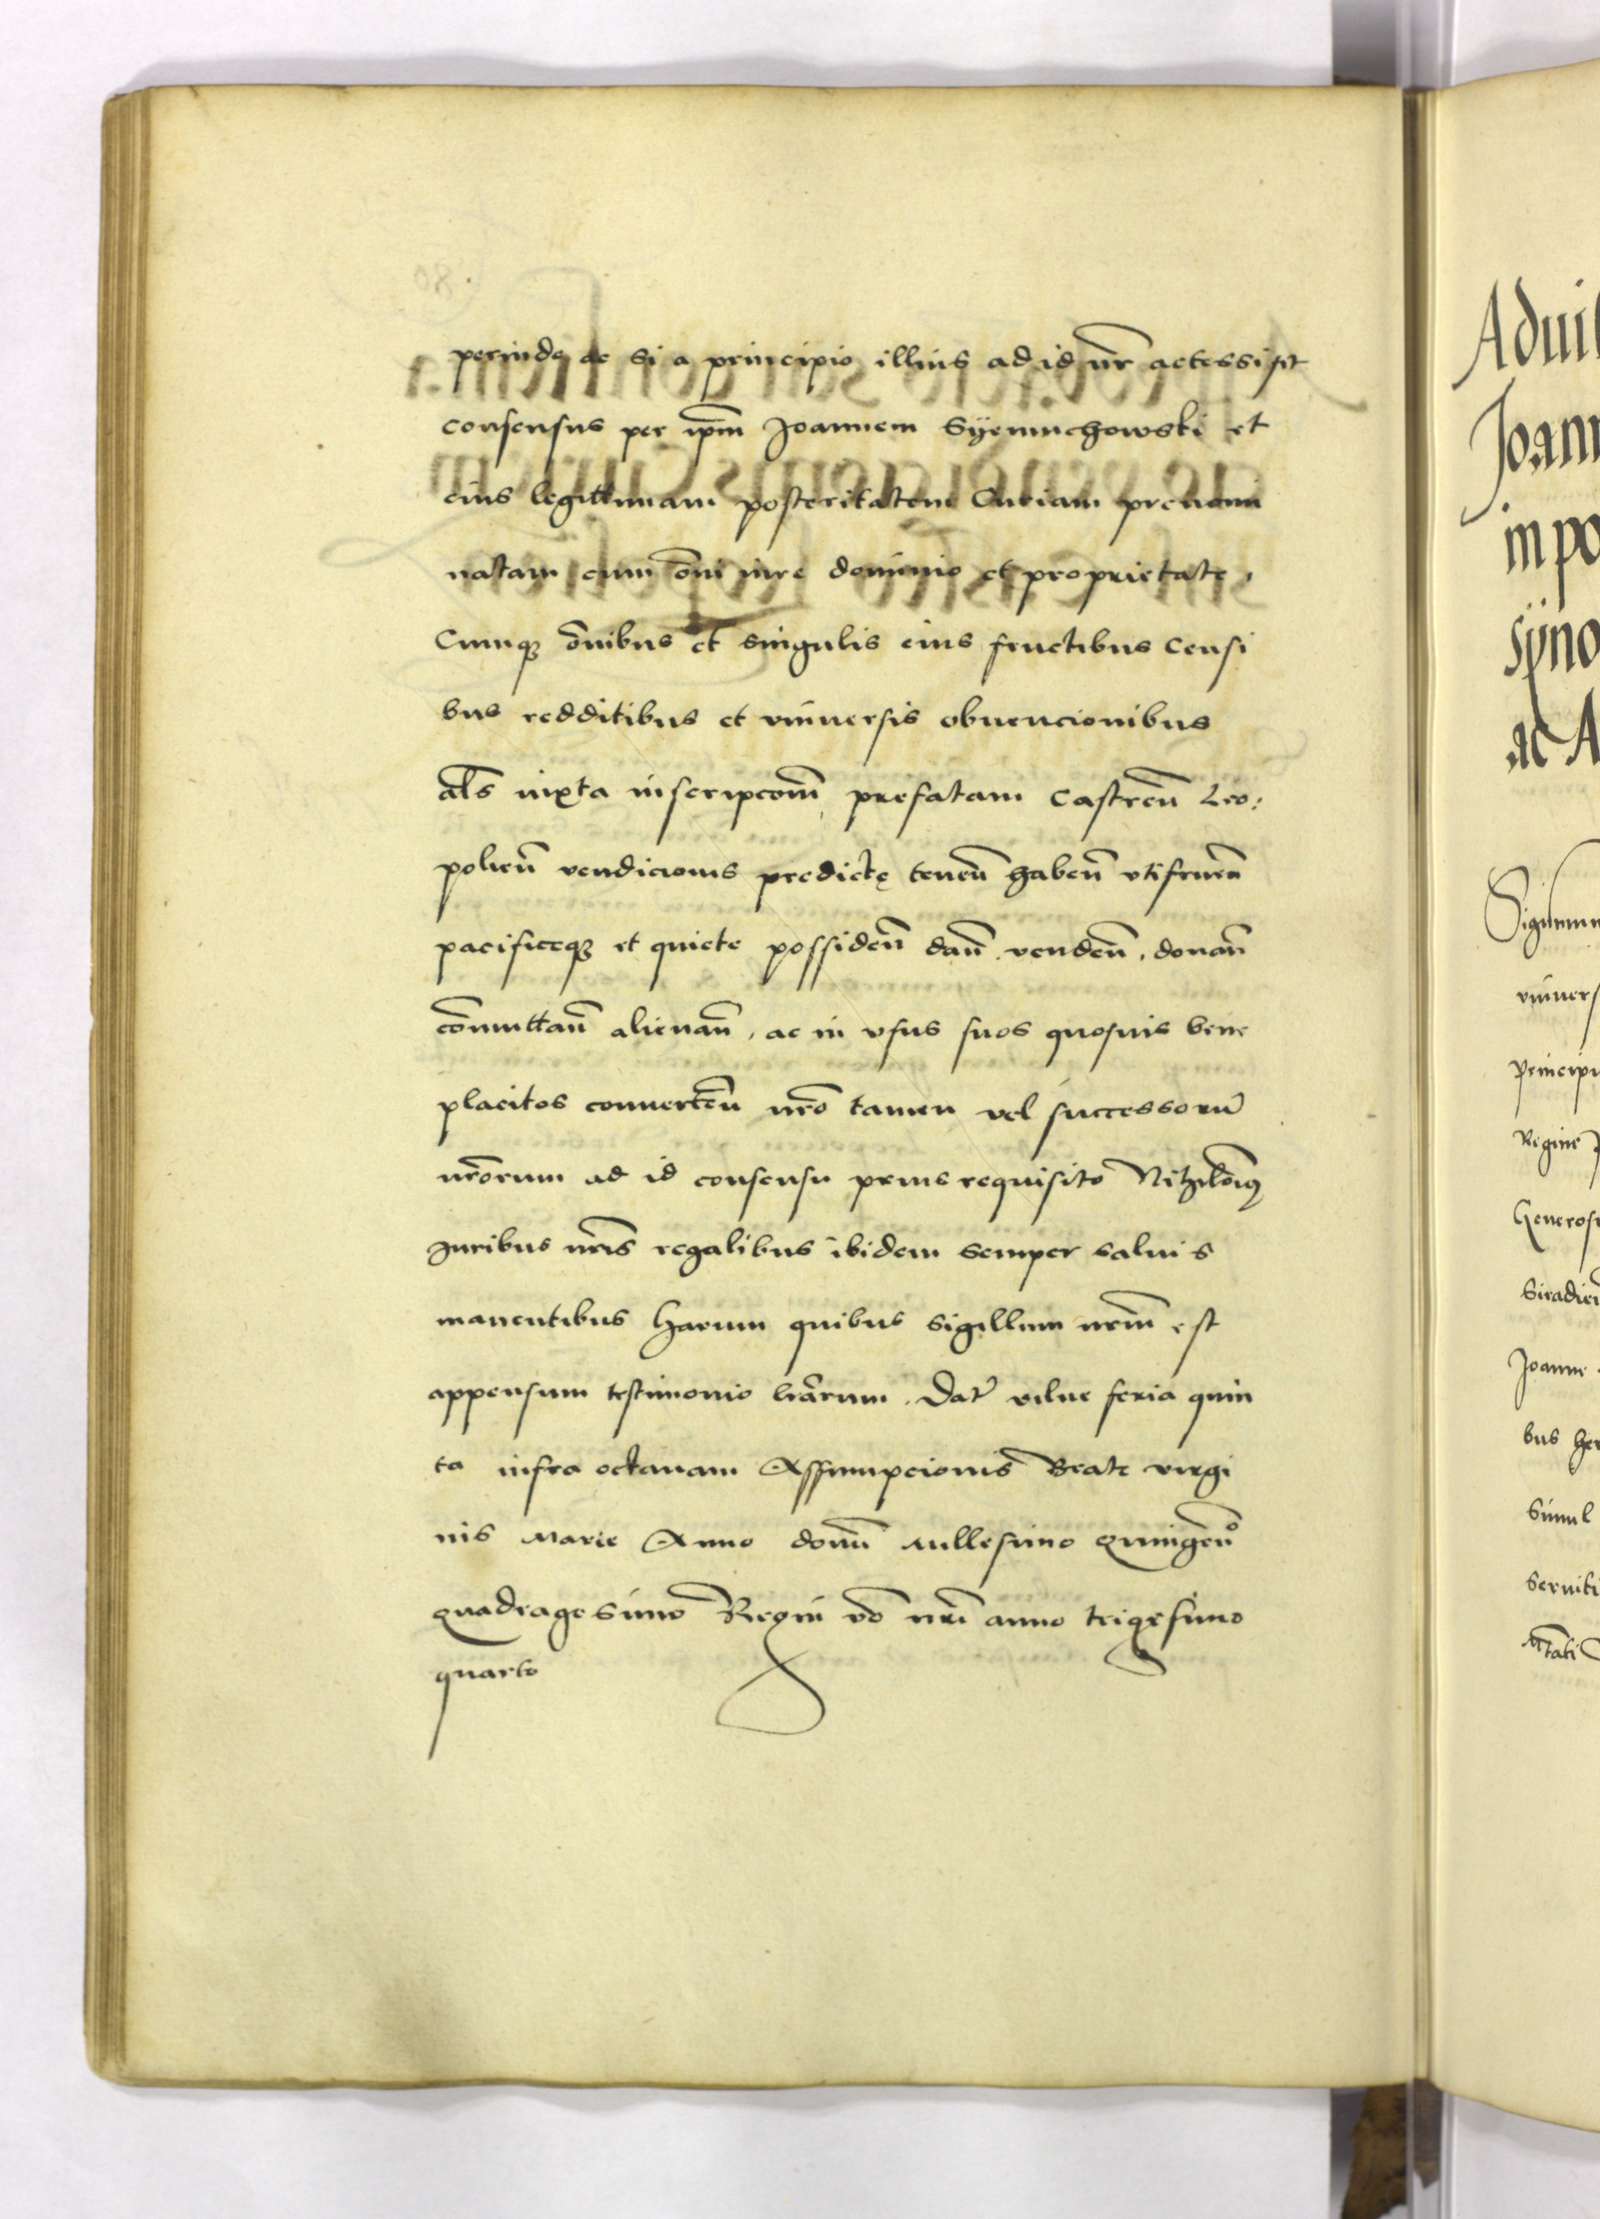 perinde ac si a principio illius ad id nr̄ accessisset
consensus per ip̄m Joannem Syemuchowski et
eius legittimam posteritatem Curiam prenomi
natam cum om̄i iure dominio et proprietate,
Cumqꝫ om̄ibus et singulis eius fructibus censi
bus redditibus et vniuersis obuencionibus
al̄s iuxta inscripcom̄ prefatam Castren̄ Leo:
polien̄ vendicionis predictę tenen̄ haben̄ vtifruen̄
pacificeqꝫ et quiete possiden̄ dan̄ venden̄, donan̄
com̄uttan̄ alienan̄, ac in vsus suos quosuis bene
placitos conuerten̄ nr̄o tamen vel successorū
nr̄orum ad id consensu prius requisito
Juribus nr̄is regalibus ibidem semper saluis
manentibus harum quibus sigillum nr̄m est
appensum testimonio lr̄arum. Dat̄ vilne feria quin
ta infra octauam Assumpcionis Beate virgi
nis Marie Anno domī Millesimo Quingen̄o
quadragesimo Regni vo͞ nr̄i anno trigesimo
quarto
Joan
in po
syno
ac A
vniuers
Principi
Regine
Generos
Siradien̄
Joanne
bus her
Simul
seruiti